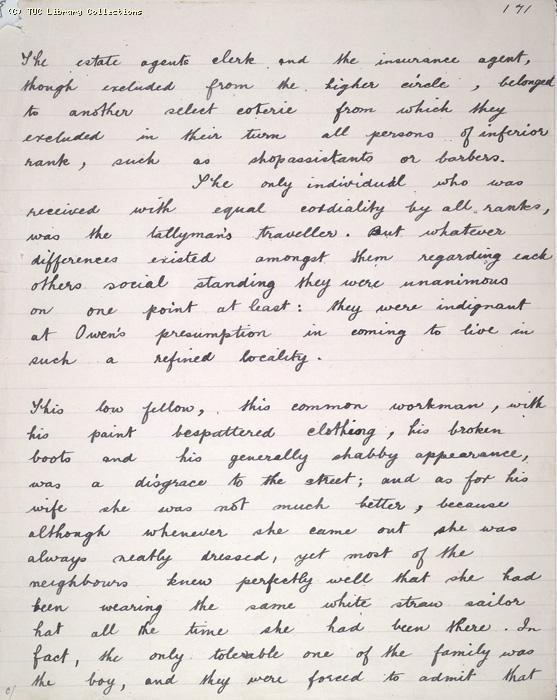 (C) TUC Library Collections
171
The estate agents clerk and the insurance agent,
though excluded from the higher circle, belonged
to another select coterie from which they
excluded in their turn all persons of inferior
rank, such as shopassistants or barbers.
The only individual who was
received with equal cordiality by all ranks,
was the tallyman's traveller. But whatever
differences existed amongst them regarding each
others social standing they were unanimous
on one point at least: they were indignant
at Owen's presumption in coming to live in
such a refined locality.
This low fellow, this common workman, with
his paint bespattered clothing, his broken
boots and his generally shabby appearance,
was a disgrace to the street; and as for his
wife she was not much better, because
although whenever she came out she was
always neatly dressed, yet most of the
neighbours knew perfectly well that she had
been wearing the same white straw sailor
hat all the time she had been there. In
fact, the only tolerable one of the family was
the boy, and they were forced to admit that